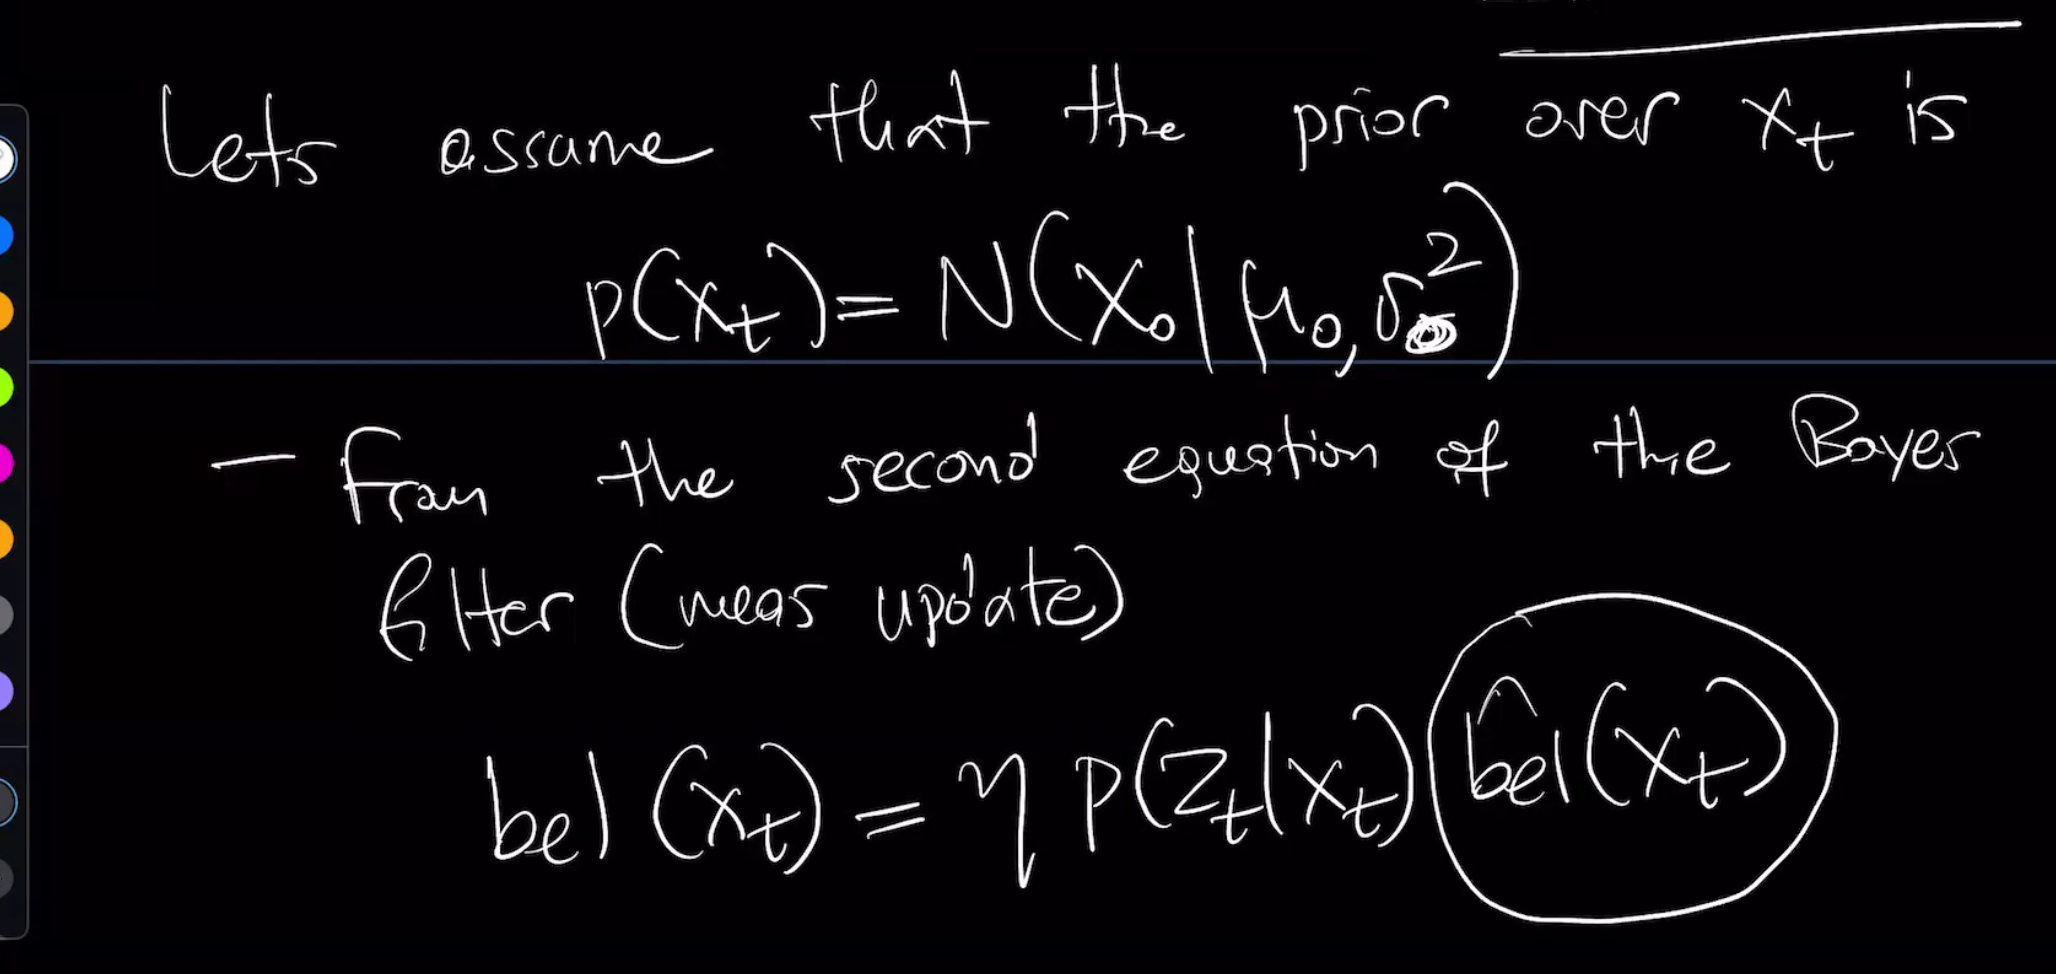 Lets assume that the prior over x_t is
p(x_t) = N(x_0 | μ_0, σ_0^2)
- From the second equation of the Bayes
filter (meas update)
bel (x_t) = η p(z_t|x_t) \hat{bel}(x_t)